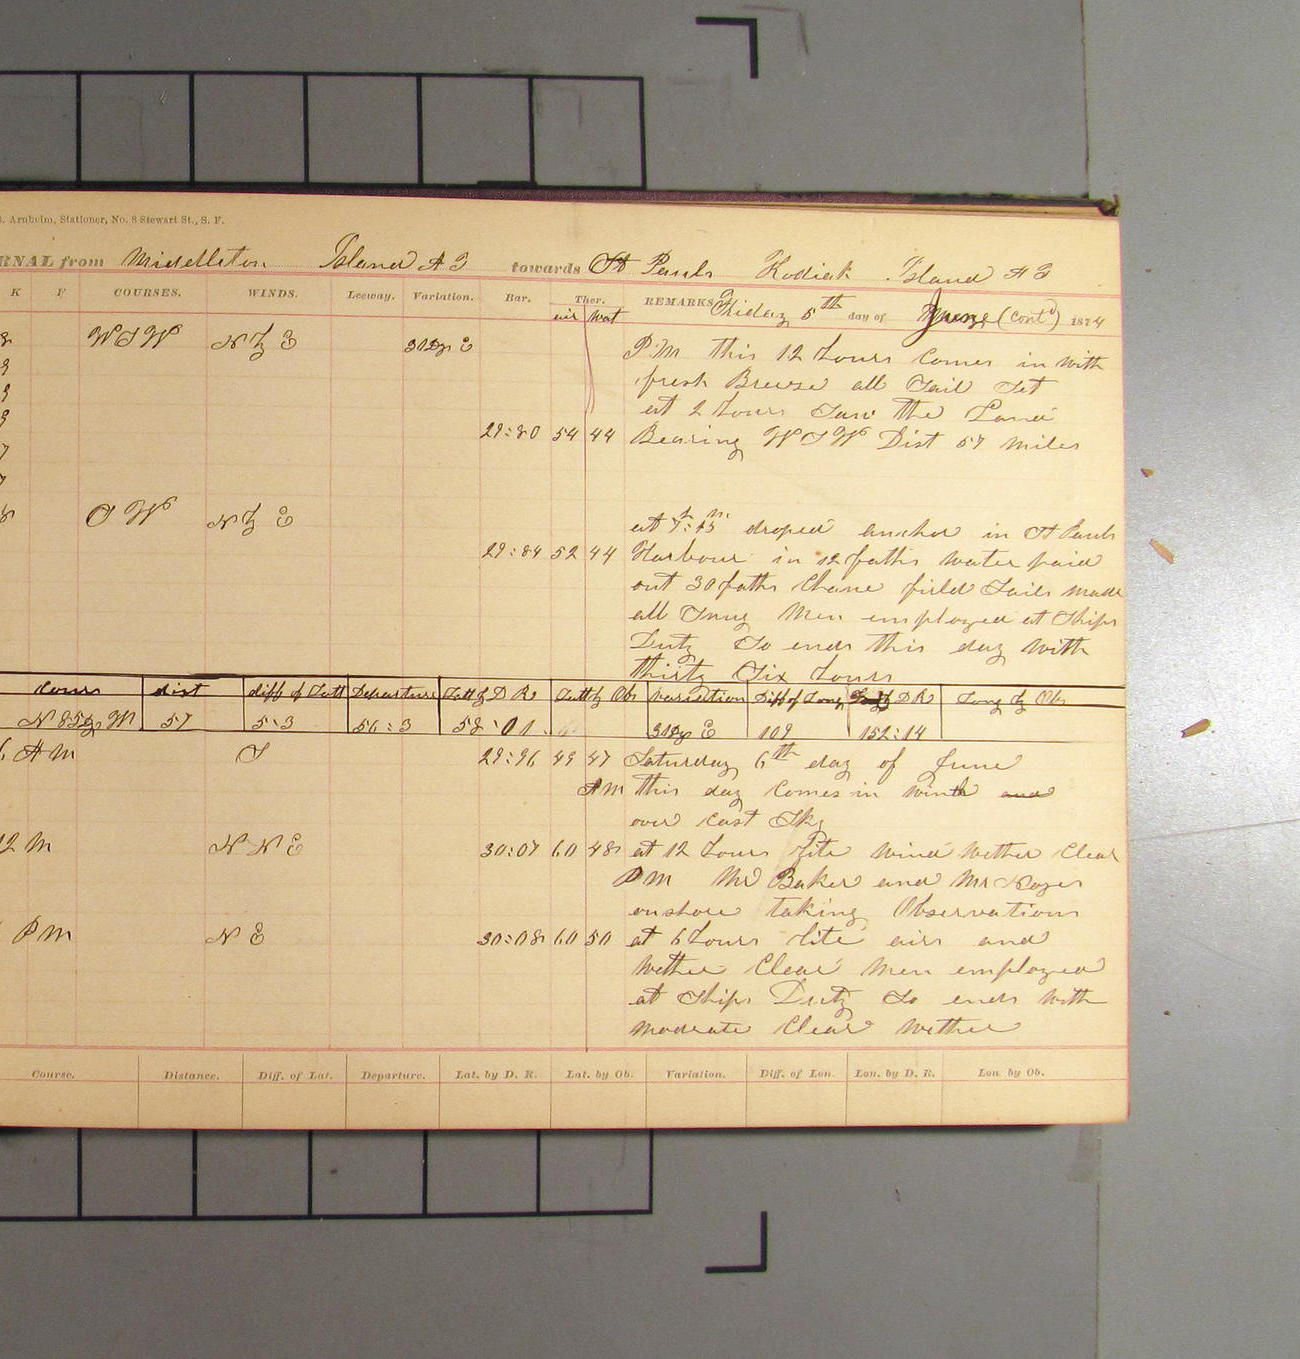 . Arnheim, Stationer, No. 8 Stewart St., S. F.
RNAL from Middleton Island A T towards St Pauls Kodiak Island A T
K F COURSES. WINDS. Leeway. Variation. Bar. Ther. REMARKS Friday 5th day of June (Cont) 1874
air Wat
8 W S W N by E 31Dgr E P M this 12 hours Comes in With
9 fresh Breeze all Sail Set
9 at 2 hours Saw the Land
9 29:80 54 44 Bearing W S W Dist 57 miles
7
7
8 S W N by E at 7h:15m droped anchor in St Pauls
29:84 52 44 Harbour in 12 faths water paid
out 30 faths Chane firld Sails made
all Snug Men employed at Ships
Duty So ends this day With
thirty Six hours
Cours dist diff of Latt Departure Latt by D R Latt by Obs Varsition Diff of Long Long by D R Long by Obs
N 85Dgr W 57 5:3 56:3 58:01 31Dgr E 109 152:14
6 A M S 29:96 49 47 Saturday 6th day of June
A M this day Comes in with and
over Cast Sky
12 M N N E 30:07 60 48 at 12 hours lite wind Wether Clear
P M Mr Baker and Mr Noyes
onshore taking Observations
P M N E 30:08 60 50 at 6 hours lite airs and
Wether Clear Men employed
at Ships Duty So ends With
moderate Clear Wether
Course. Distance. Diff. of Lat. Departure. Lat. by D. R. Lat. by Ob. Variation. Diff. of Lon. Lon. by D. R. Lon by Ob.